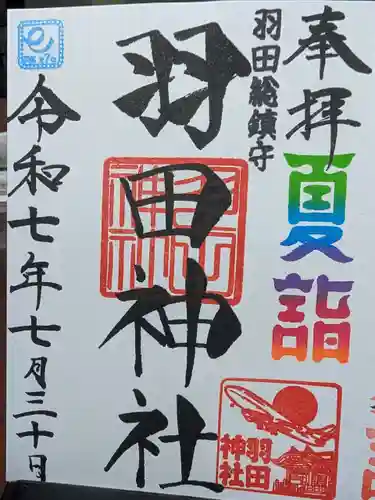 奉拝
夏詣
羽田総鎮守
羽田神社
羽田
神社
令和七年七月三十日